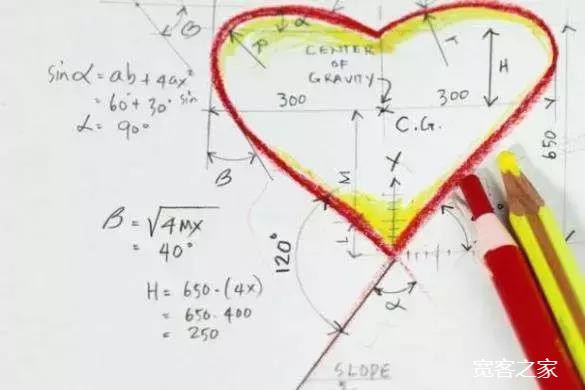 B
α
R
T
CENTER
OF
GRAVITY
H
sin α = ab + 4ax²
= 60° + 30° sin
α = 90°
300
300
C.G.
650
B
M
X
B = √4MX
= 40°
120°
L
H = 650 - (4x)
= 650 - 400
= 250
α
SLOPE
宽客之家